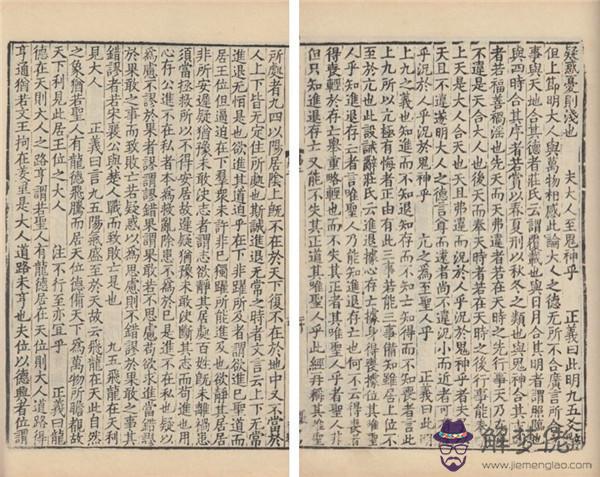 疑惑憂則淺也　夫大人至鬼神乎　正義曰此明九五爻辭
但上節明大人與萬物相感此論大人之德无所不合廣言所
事與天地合其德者莊氏云謂覆載也與日月合其明者謂照臨也
與四時合其序者若賞以春夏刑以秋冬之類也與鬼神合其吉
者若福善禍淫也先天而天弗違者若在天時之先行事天乃在
不違是天合大人也後天而奉天時者若在天時之後行事能奉
上天是大人合天也天且弗違而況於人乎況於鬼神乎者夫
天且不違遂明大人之德言尊而遠者尚不違況小而近者可
乎況於人乎況於鬼神乎　亢之為至聖人乎　正義曰
上九之義也知進而不知退知存而不知亡知得而不知喪者言此
上九所以亢極有悔者正由有此三事若能三事備知雖居上位不
至於亢也此設誡辭莊氏云進退據心存亡據身得喪據位其唯聖
人乎知進退存亡者言唯聖人乃能知進退存亡也何不云得喪者
得喪輕於存亡舉重略輕也而不失其正者其唯聖人乎
但只知進退存亡又能不失其正道其唯聖人乎此經再稱其唯聖
所處者九四以陽居陰上既不在於天下復不在於地中又不當於
人上下皆无定住所處也斯誠進退无常之時者文言云上下无常
進退无恒是也欲進其道迫乎在下非躍所及者謂欲進己聖道而
居王位但逼迫在下群衆未許非己獨躍所能進及也欲靜其居居
非所安遲疑猶豫未敢決志者謂志欲靜其居處百姓既未離禍患
須當拯救所以不得安居故遲疑猶豫未敢決斷其志而苟進也用
心存公進不在私者本為救亂除患不為於己是進不在私也疑以
為慮不謬於果者謀謂謬錯果謂果敢若不思慮苟欲求進當錯謬
於果敢之事而致敗亡若疑惑以為思慮則不錯謬於果敢之事其
錯謬者若宋襄公與楚人戰而致敗亡是也　九五飛龍在天利
見大人　正義曰言九五陽氣盛至於天故云飛龍在天此自然
之象猶若聖人有龍德飛騰而居天位德備天下為萬物所瞻覩故
天下利見此居王位之大人　注不行至亦宜乎　正義曰龍
德在天則大人之路亨謂若聖人有龍德居在天位則大人道路得
亨通猶若文王拘在羑里是大人道路未亨也夫位以德興者位謂
解梦佬
www.jiemenglao.com